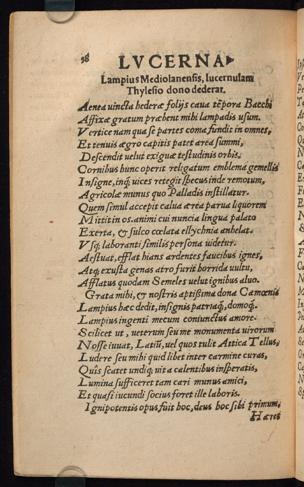 28 LVCERNA
Lampius Mediolanensis, lucernulam
Thylesio dono dederat.
Aenea uincta hederæ folijs caua tēpora Bacchi
Affixæ gratum præbent mihi lampadis usum.
Vertice nam qua se partes coma fundit in omnes,
Et tenuis ægro capitis patet area summi,
Descendit uelut exiguæ testudinis orbis.
Cornibus hunc operit religatum emblema gemellis
Insigne, inq; uices retegit specus inde remotum,
Agricolæ munus quo Palladis instillatur.
Quem simul accepit calua area parua liquorem
Mittit in os. animi cui nuncia lingua palato
Exerta, & sulco cœlata ellychnia anhelat.
Vsq; laboranti similis persona uidetur.
Aestuat, efflat hians ardentes faucibus ignes,
Atq; exusta genas atro furit horrida uultu,
Afflatus quodam Semeles uelut ignibus aluo.
Grata mihi, & nostris aptissima dona Camœnis
Lampius hæc dedit, insignis patriaq́;, domoq́;.
Lampius ingenti mecum coniunctus amore.
Scilicet ut, ueterum seu me monumenta uirorum
Nosse iuuat, Latiū, uel quos tulit Attica Tellus,
Ludere seu mihi quid libet inter carmine curas,
Quîs scatet undiq; uita calentibus insperatis,
Lumina sufficeret tam cari munus amici,
Et quasi iucundi socius foret ille laboris.
Ignipotentis opus fuit hoc, deus hoc sibi primum,